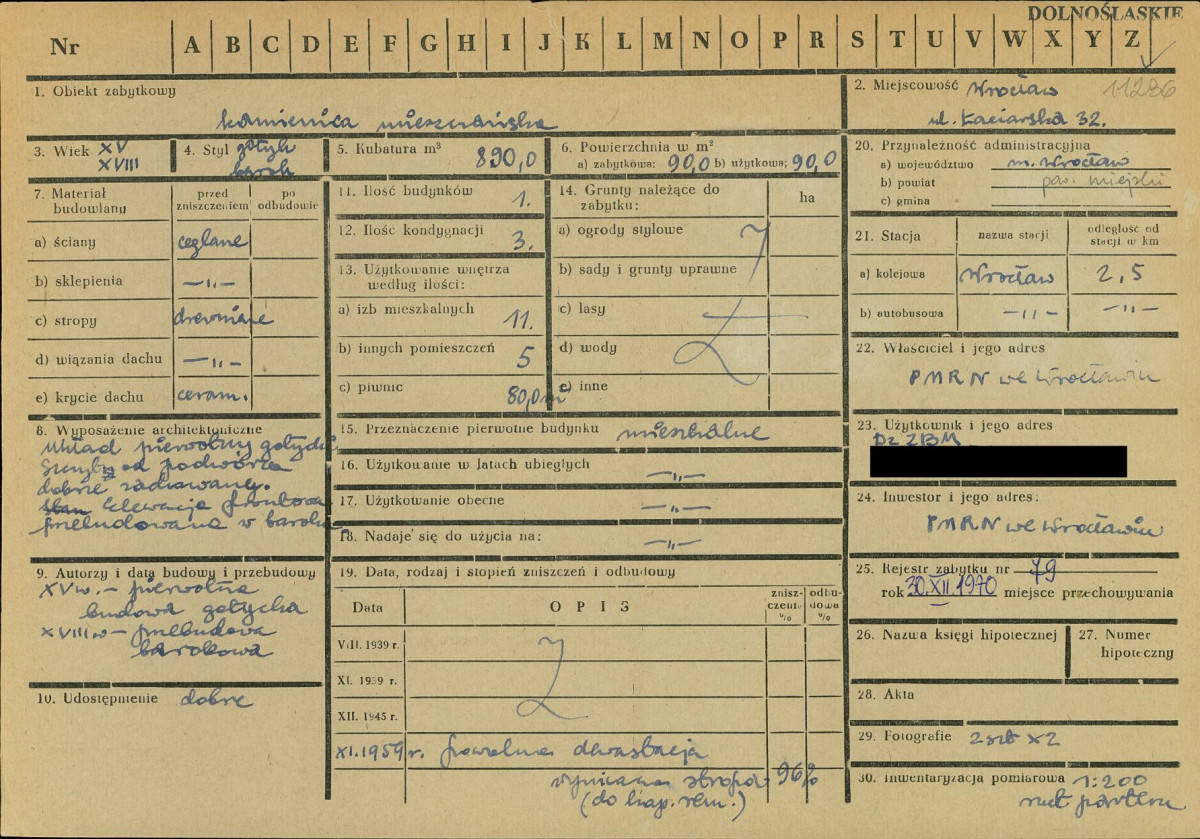 DOLNOŚLĄSKIE
Nr A B C D E F G H I J K L M N O P R S T U V W X Y Z
11286
1. Obiekt zabytkowy
kamienica mieszczańska
2. Miejscowość Wrocław
ul. Łaciarska 32.
3. Wiek XV
XVIII
4. Styl gotyk
barok
5. Kubatura m³ 890,0
6. Powierzchnia w m²
a) zabytkowa: 90,0 b) użytkowa; 90,0
20. Przynależność administracyjna
a) województwo m. Wrocław
b) powiat pow. miejski
c) gmina
7. Materiał budowlany
przed zniszczeniem
po odbudowie
a) ściany ceglane
b) sklepienia —„—
c) stropy drewniane
d) wiązania dachu —„—
e) krycie dachu ceram.
11. Ilość budynków 1.
12. Ilość kondygnacji 3.
13. Użytkowanie wnętrza
według ilości:
a) izb mieszkalnych 11.
b) innych pomieszczeń 5
c) piwnic 80,0 m
14. Grunty należące do
zabytku:
ha
a) ogrody stylowe
b) sady i grunty uprawne
c) lasy
d) wody
e) inne
21. Stacja
nazwa stacji
odległość od
stacji w km
a) kolejowa Wrocław 2,5
b) autobusowa —„— —„—
22. Właściciel i jego adres
PMRN we Wrocławiu
8. Wyposażenie architektoniczne
Układ pierwotny gotycki,
Szczyty od podwórza
dobrze zachowany.
Stan Elewacja frontowa
przebudowana w baroku
15. Przeznaczenie pierwotne budynku mieszkalne
16. Użytkowanie w latach ubiegłych —„—
17. Użytkowanie obecne —„—
18. Nadaje się do użycia na: —„—
23. Użytkownik i jego adres
Dz ZBM
24. Inwestor i jego adres:
PMRN we Wrocławiu
9. Autorzy i data budowy i przebudowy
XV w. – pierwotna
budowa gotycka
XVIII w – przebudowa
barokowa
10. Udostępnienie dobre
19. Data, rodzaj i stopień zniszczeń i odbudowy
Data
OPIS
znisz-
czenia
%
odbu-
dowa
%
VIII. 1939 r.
XI. 1939 r.
XII. 1945 r.
XI. 1959 r. poważna dewastacja
wymiana stropów 96%
(do kap. rem.)
25. Rejestr zabytku nr 79
rok 30.XII.1970 miejsce przechowywania
26. Nazwa księgi hipotecznej
27. Numer
hipoteczny
28. Akta
29. Fotografie 2 szt x2
30. Inwentaryzacja pomiarowa 1:200
rzut parteru